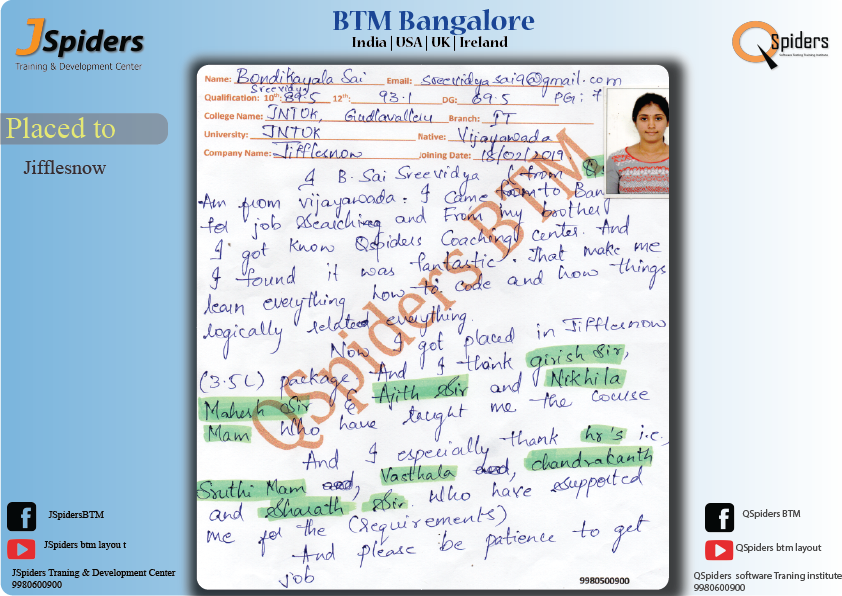 JSpiders
Training & Development Center
BTM Bangalore
India | USA | UK | Ireland
QSpiders
Software Testing Training Institute
Placed to
Jifflesnow
Name: Bondikayala Sai Email: sreevidya.sai9@gmail.com
Sreevidya
Qualification: 10th: 89.5 12th: 93.1 DG: 69.5 PG: 7
College Name: JNTUK, Gudlavalleru Branch: IT
University: JNTUK Native: Vijayawada
Company Name: Jifflesnow Joining Date: 18/02/2019.
I B. Sai Sreevidya from
Am from vijayawada. I came from to Ban
for job searching and From my brother
I got know Qspiders Coaching center. And
I found it was fantastic. That make me
learn everything how to code and how things
logically related everything.
Now I got placed in Jifflesnow
(3.5L) package. And I thank girish Sir,
Mahesh Sir & Ajith Sir and Nikhila
Mam who have taught me the course
And I especially thank hr's i.e,
Sruthi Mam and, Vasthala and, chandrakanth
and Sharath Sir. who have supported
me for the (requirements)
And please be patience to get
job
QSpiders BTM
9980500900
JSpidersBTM
JSpiders btm layou t
JSpiders Traning & Development Center
9980600900
QSpiders BTM
QSpiders btm layout
QSpiders software Traning institute
9980600900